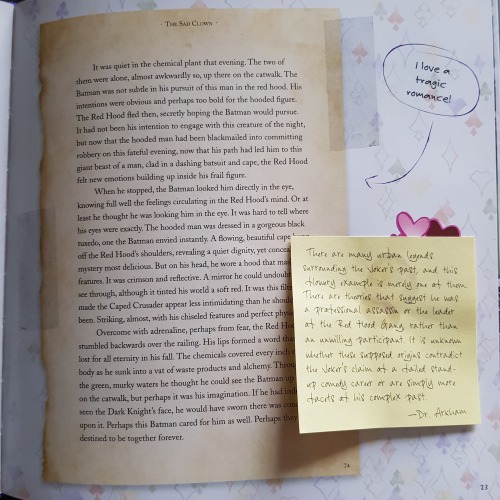 · The Sad Clown ·
It was quiet in the chemical plant that evening. The two of
them were alone, almost awkwardly so, up there on the catwalk. The
Batman was not subtle in his pursuit of this man in the red hood. His
intentions were obvious and perhaps too bold for the hooded figure.
The Red Hood fled then, secretly hoping the Batman would pursue.
It had not been his intention to engage with this creature of the night,
but now that the hooded man had been blackmailed into committing
robbery on this fateful evening, now that his path had led him to this
giant beast of a man, clad in a dashing batsuit and cape, the Red Hood
felt new emotions building up inside his frail figure.
When he stopped, the Batman looked him directly in the eye,
knowing full well the feelings circulating in the Red Hood's mind. Or at
least he thought he was looking him in the eye. It was hard to tell where
his eyes exactly were. The hooded man was dressed in a gorgeous black
tuxedo, one the Batman envied instantly. A flowing, beautiful cape
off the Red Hood's shoulders, revealing a quiet dignity, yet
mystery most delicious. But on his head, he wore a hood that
features. It was crimson and reflective. A mirror he could
see through, although it tinted his world a soft red. It was this
made the Caped Crusader appear less intimidating than he
been. Striking, almost, with his chiseled features and perfect
Overcome with adrenaline, perhaps from fear, the Red
stumbled backwards over the railing. His lips formed a word
lost for all eternity in his fall. The chemicals covered every
body as he sunk into a vat of waste products and alchemy.
the green, murky waters he thought he could see the Batman
on the catwalk, but perhaps it was his imagination. If he had
seen the Dark Knight's face, he would have sworn there was
upon it. Perhaps this Batman cared for him as well. Perhaps
destined to be together forever.
74
I love a
tragic
romance!
There are many urban legends
surrounding the Joker's past, and this
flowery example is merely one of them.
There are theories that suggest he was
a professional assassin or the leader
of the Red Hood Gang rather than
an unwilling participant. It is unknown
whether these supposed origins contradict
the Joker's claim of a failed stand-
up comedy career or are simply more
facets of his complex past.
—Dr. Arkham
23